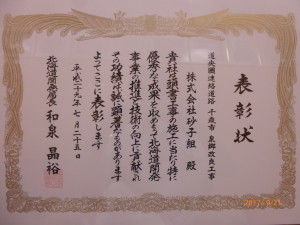 表彰状
道央圏連絡道路 千歳市 泉郷改良工事
株式会社砂子組 殿
貴社は頭書工事の施工に当たり特に
優秀な成果を収めもって北海道開発
事業の推進と技術の向上に貢献され
その功績は誠に顕著なものがあります
よってここに表彰します
平成二十九年七月二十五日
北海道開発局長 和泉晶裕